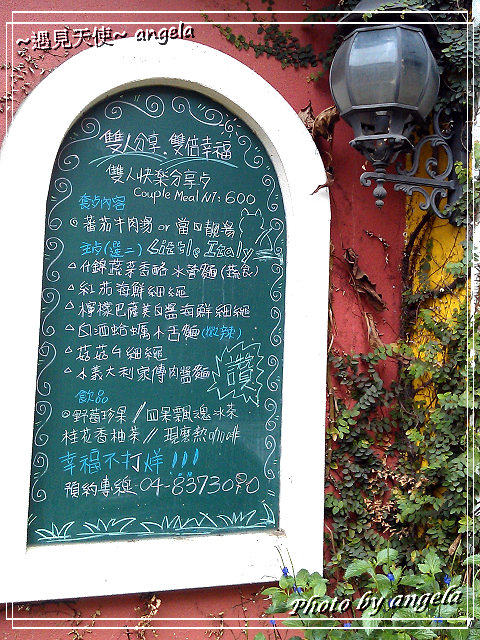 ~遇見天使~ angela
雙人分享.雙倍幸福
雙人快樂分享点
Couple Meal NT: 600
套点內容
番茄牛肉湯 or 當日靚湯
主点(選二) Little Italy
△什錦蔬菜香酪水管麵(蔬食)
△紅茄海鮮細麵
△檸檬巴薩米白醬海鮮細麵
△白酒蛤蠣小舌麵(微辣)
△菇菇牛細麵
△小義大利家傳肉醬麵
讚
飲品
◎野莓珍果 // 四果飄魂冰茶
桂花香柚茶 // 現磨熱咖啡
幸福不打烊!!!
預約專線-04-
Photo by angela